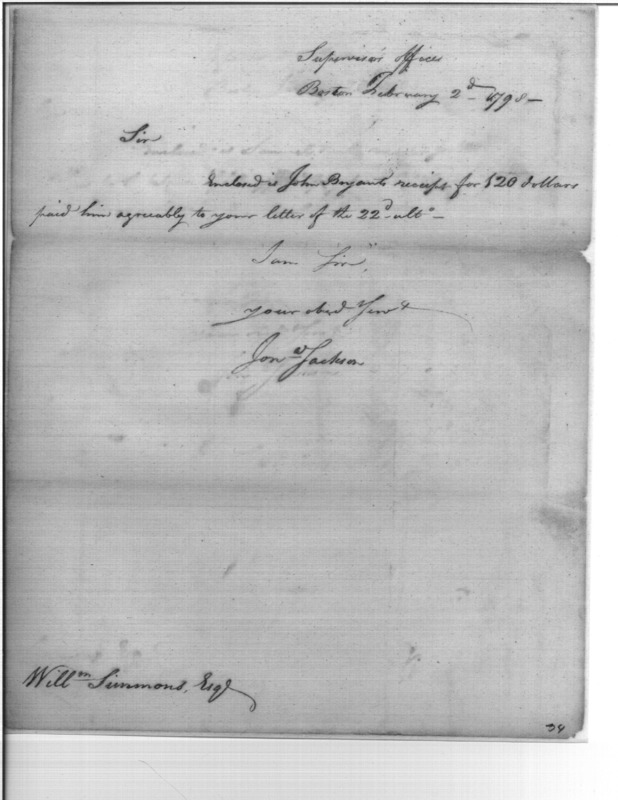 Supervisors office
Boston February 2d 1798 —
Sir
Enclosed is John Bryants receipt for 120 dollars
paid him agreeably to your letter of the 22d ulto —
I am Sir,
your obed Servt
Jona Jackson
Willm Simmons, Esqr
34